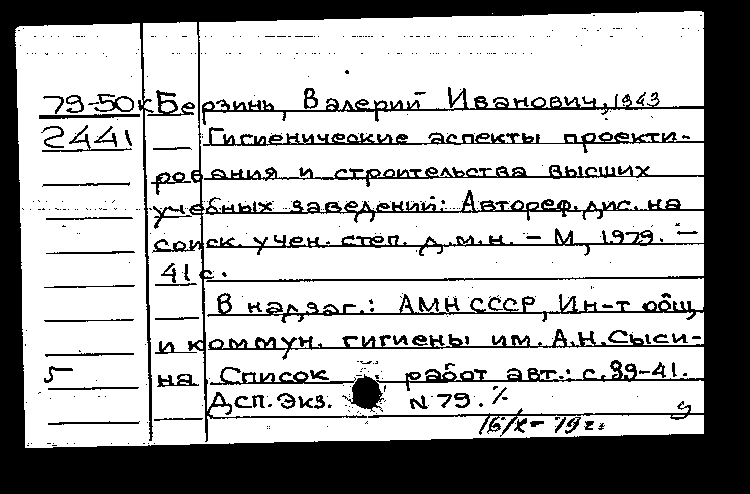 79-50к Берзинь, Валерий Иванович, 1943
2441 Гигиенические аспекты проекти-
рования и строительства высших
учебных заведений: Автореф. дис. на
соиск. учен. степ. д.м.н. - М, 1979. -
41 с.
В надзаг.: АМН СССР, Ин-т общ.
и коммун. гигиены им. А.Н. Сыси-
5 на. Список работ авт.: с. 39-41.
Дсп. Экз. N 79.
16/X- 79 г.